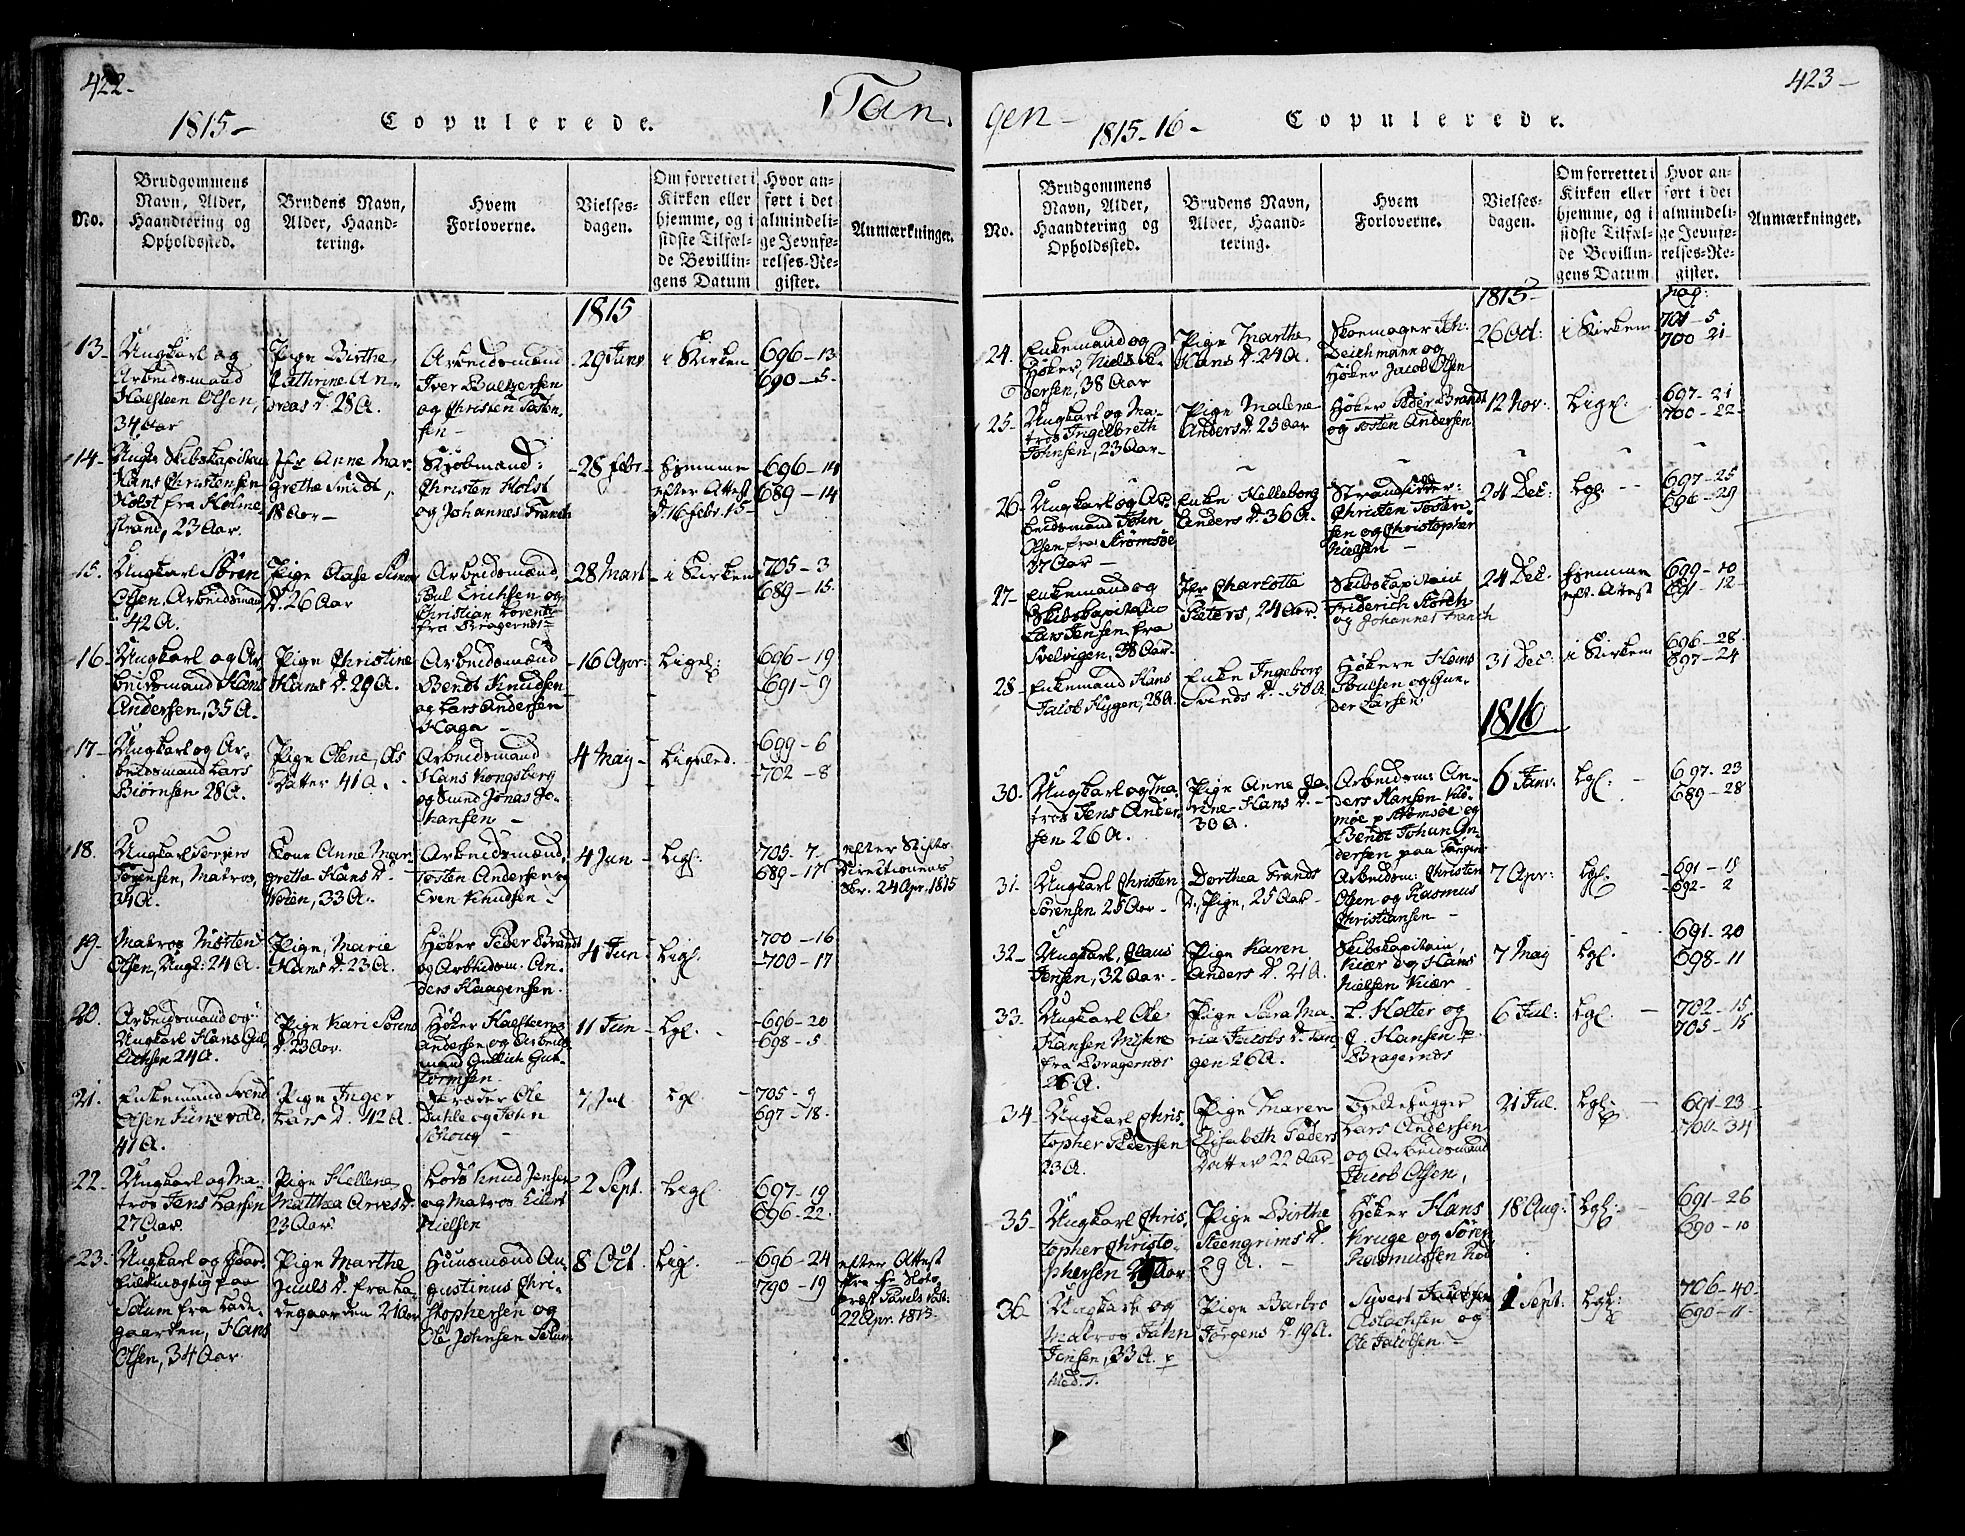 422-
Tan.
1815-
Copulerede.
No.
Brudgommens
Navn, Alder,
Haandtering og
Opholdssted.
Brudens Navn,
Alder, Haand-
tering.
Hvem
Forloverne.
Vielses-
dagen.
Om forrettet i
Kirken eller
hjemme, og i
sidste Tilfæl-
de Bevillin-
gens Datum
Hvor an-
ført i det
almindeli-
ge Jevnfø-
relses-Re-
gister.
Anmærkninger.
1815
13-
Ungkarl og
Arbeidsmand
Halsteen Olsen,
34 Aar
Pige Birthe
Cathrine An-
dreas D. 28 A.
Arbeidsmænd
Iver Baltzersen
og Christen Tosten-
sen-
29 Janv
i Kirken
696-13
690-5-
14-
Ungk. Skibskapitain
Hans Christensen
Holst fra Holme-
strand, 23 Aar.
Jfr Anne Mar-
grethe Smidt,
18 Aar-
Kjøbmænd:
Christen Holst
og Johannes Tranch
-28 febr-
hjemme
efter Attest
d. 16 febr. 15-
696-14
689-14
15.
Ungkarl Sören
Olsen, Arbeidsmand
42 A.
Pige Aase Simons
D. 26 Aar
Arbeidsmænd
Poul Erichsen og
Christian Lorentz
fra Bragernes-
28 Mart-
i Kirken
705-3
689-15-
16-
Ungkarl og Ar-
beidsmand Hans
Andersen, 35 A.
Pige Christine
Hans D. 29 A.
Arbeidsmænd
Bendt Knudsen
og Lars Andersen
Haga-
-16 Apr:
Ligel:
696-19
691-9
17-
Ungkarl og Ar-
beidsmand Lars
Biörnsen 28 A.
Pige Olene, Ols
Datter 41 A.
Arbeidsmænd
Hans Kongsberg
og Smed Jonas Jo-
hansen-
4 May-
Ligeled.
699-6
-702-8
18.
Ungkarl
Sörensen, Matros,
34 A.
Kone Anne Mar-
grethe Hans D.
33 A.
Arbeidsmænd,
Tosten Andersen og
Even Knudsen-
4 Jun-
Ligl:
705-7-
689-17
efter Stifts-
Directionens
24 Apr. 1815
19-
Matros Morten
Olsen, Ungk: 24 A.
Pige, Marie
Hans D. 23 A.
Höker Peder Brandt
og Arbeidsm: An-
ders Haagensen.
4 Jun-
Ligl.
-700-16
-700-17
20.
Arbeidsmand og
Ungkarl Hans Gul-
lichsen 24 A.
Pige Kari Sörens
D. 23 Aar.
Höker Halsteen
Andersen og Arbeids-
mand Gullich Gut-
tormsen.
11 Jun-
Lgl.
-696-20
-698-5
21.
Enkemand Svend
Olsen
41 A.
Pige Inger
Lars D. 42 A.
Skræder Ole
Dahle og John
Schoug-
7 Jul
Lgl.
-705-9
697-18-
22.
Ungkarl og Ma-
tros Jens Larsen
27 Aar.
Pige Hellene
Matthea Arves D.
23 Aar.
Lods Knud Jensen
og Matros Eilert
Nielsen
2 Sept.
Ligl.
697-19
696-22-
23.
Ungkarl og
fuldmægtig paa
Solum fra Lade-
gaarden, Hans
Olsen, 34 Aar.
Pige Marthe
Juuls D. fra La-
degaarden 21 Aar
Huusmænd Au-
gustinus Chri-
stophersen og
Ole Johnsen Solum
8 Oct.
Ligl.
696-24
790-19
efter Attest
fra Hr. Slots-
præst Pavels
22 Apr. 1813.
423-
gen-
1815-16-
Copulerede.
No.
Brudgommens
Navn, Alder,
Haandtering og
Opholdssted.
Brudens Navn,
Alder, Haand-
tering.
Hvem
Forloverne.
Vielses-
dagen.
Om forrettet i
Kirken eller
hjemme, og i
sidste Tilfæl-
de Bevillin-
gens Datum
Hvor an-
ført i det
almindeli-
ge Jevnfø-
relses-Re-
gister.
Anmærkninger.
1815-
pag:
24.
Enkemand og
Höker, Niels
38 Aar
Pige Marthe
Hans D. 24 A.
Skoemager Joh:
Deichmann og
Höker Jacob Olsen
26 Oct:
i Kirken
701-5-
700-21-
25-
Ungkarl og Ma-
tros Ingelbreth
Johnsen, 23 Aar-
Pige Malene
Anders D. 23 Aar
Höker Peder Brandt
og Tosten Andersen
12 Nov:
Ligl:
697-21
700-22-
26-
Ungkarl og Ar-
beidsmand John
Olsen fra Strömsöe
37 Aar-
Enke Helleborg
Anders D. 36 A.
Strandsidder:
Christen Tosten-
sen og Christopher
Nielsen-
24 Dec:
Lgl.
697-25
696-29
27-
Enkemand og
Skibskapitain
Lars Jensen fra
Svelvigen, 38 Aar.
Jfr Charlotte
Peters, 24 Aar.
Skibskapitain
Friderich Storch
og Johannes Tranch
24 Dec:
hjemme
eft. Attest
699-10
691-12-
28-
Enkemand Hans
Jacob Hygen, 28 A.
Enke Ingeborg
Svends D.-50 A
Hökere Hans
Poulsen og Gun-
der Larsen
31 Dec:
i Kirken
696-28
697-24
1816
30-
Ungkarl og Ma-
tros Jens Ander-
sen 26 A.
Pige Anne
Hans D.-
30 A.
Arbeidsm: An-
ders Hansen
p Strömsöe og
Bendt Johan An-
dersen paa Tangen
6 Janv:
Lgl:
697-23
689-28
31-
Ungkarl Christen
Sörensen 25 Aar-
Dorthea Frands
D. Pige, 25 Aar-
Arbeidsm: Christen
Olsen og Rasmus
Christiansen-
7 Apr:
Lgl.
-691-15
-692-2
32-
Ungkarl, Claus
Jensen, 32 Aar-
Pige Karen
Anders D. 21 A.
Skibskapitain,
Kiær og Hans
Nielsen Kiær
7 May
Lgl.
691-20
698-11
33-
Ungkarl Ole
Hansen Myhre
fra Bragernes
26 A.
Pige Sara Ma-
ria Jacobs D. Tan-
gen 26 A.
L. Holter og
Hansen p
Bragernes
6 Jul:
Lgl.
702-15
705-15
34-
Ungkarl Chris-
topher Pedersen
23 A.
Pige Maren
Elisabeth Peders
Datter 22 Aar
Bielkehugger
Lars Andersen
og Arbeidsmand
Jacob Olsen,
21 Jul.
Lgl:
691-23-
700-34
35-
Ungkarl Chris-
topher Christo-
phersen Aar
Pige Birthe
Steengrims D.
29 A.-
Höker Hans
Kruge og Sören
Rasmussen
18 Aug:
Lgl:
691-26
690-10
36-
Ungkarl og
Matros John
Jensen, 33 A. p
Pige Barbro
Jörgens D. 19 A.
Syvert Jacobsen
Aslachsen og
Ole Jacobsen-
1 Sept:
Lgl:
706-40-
690-11-